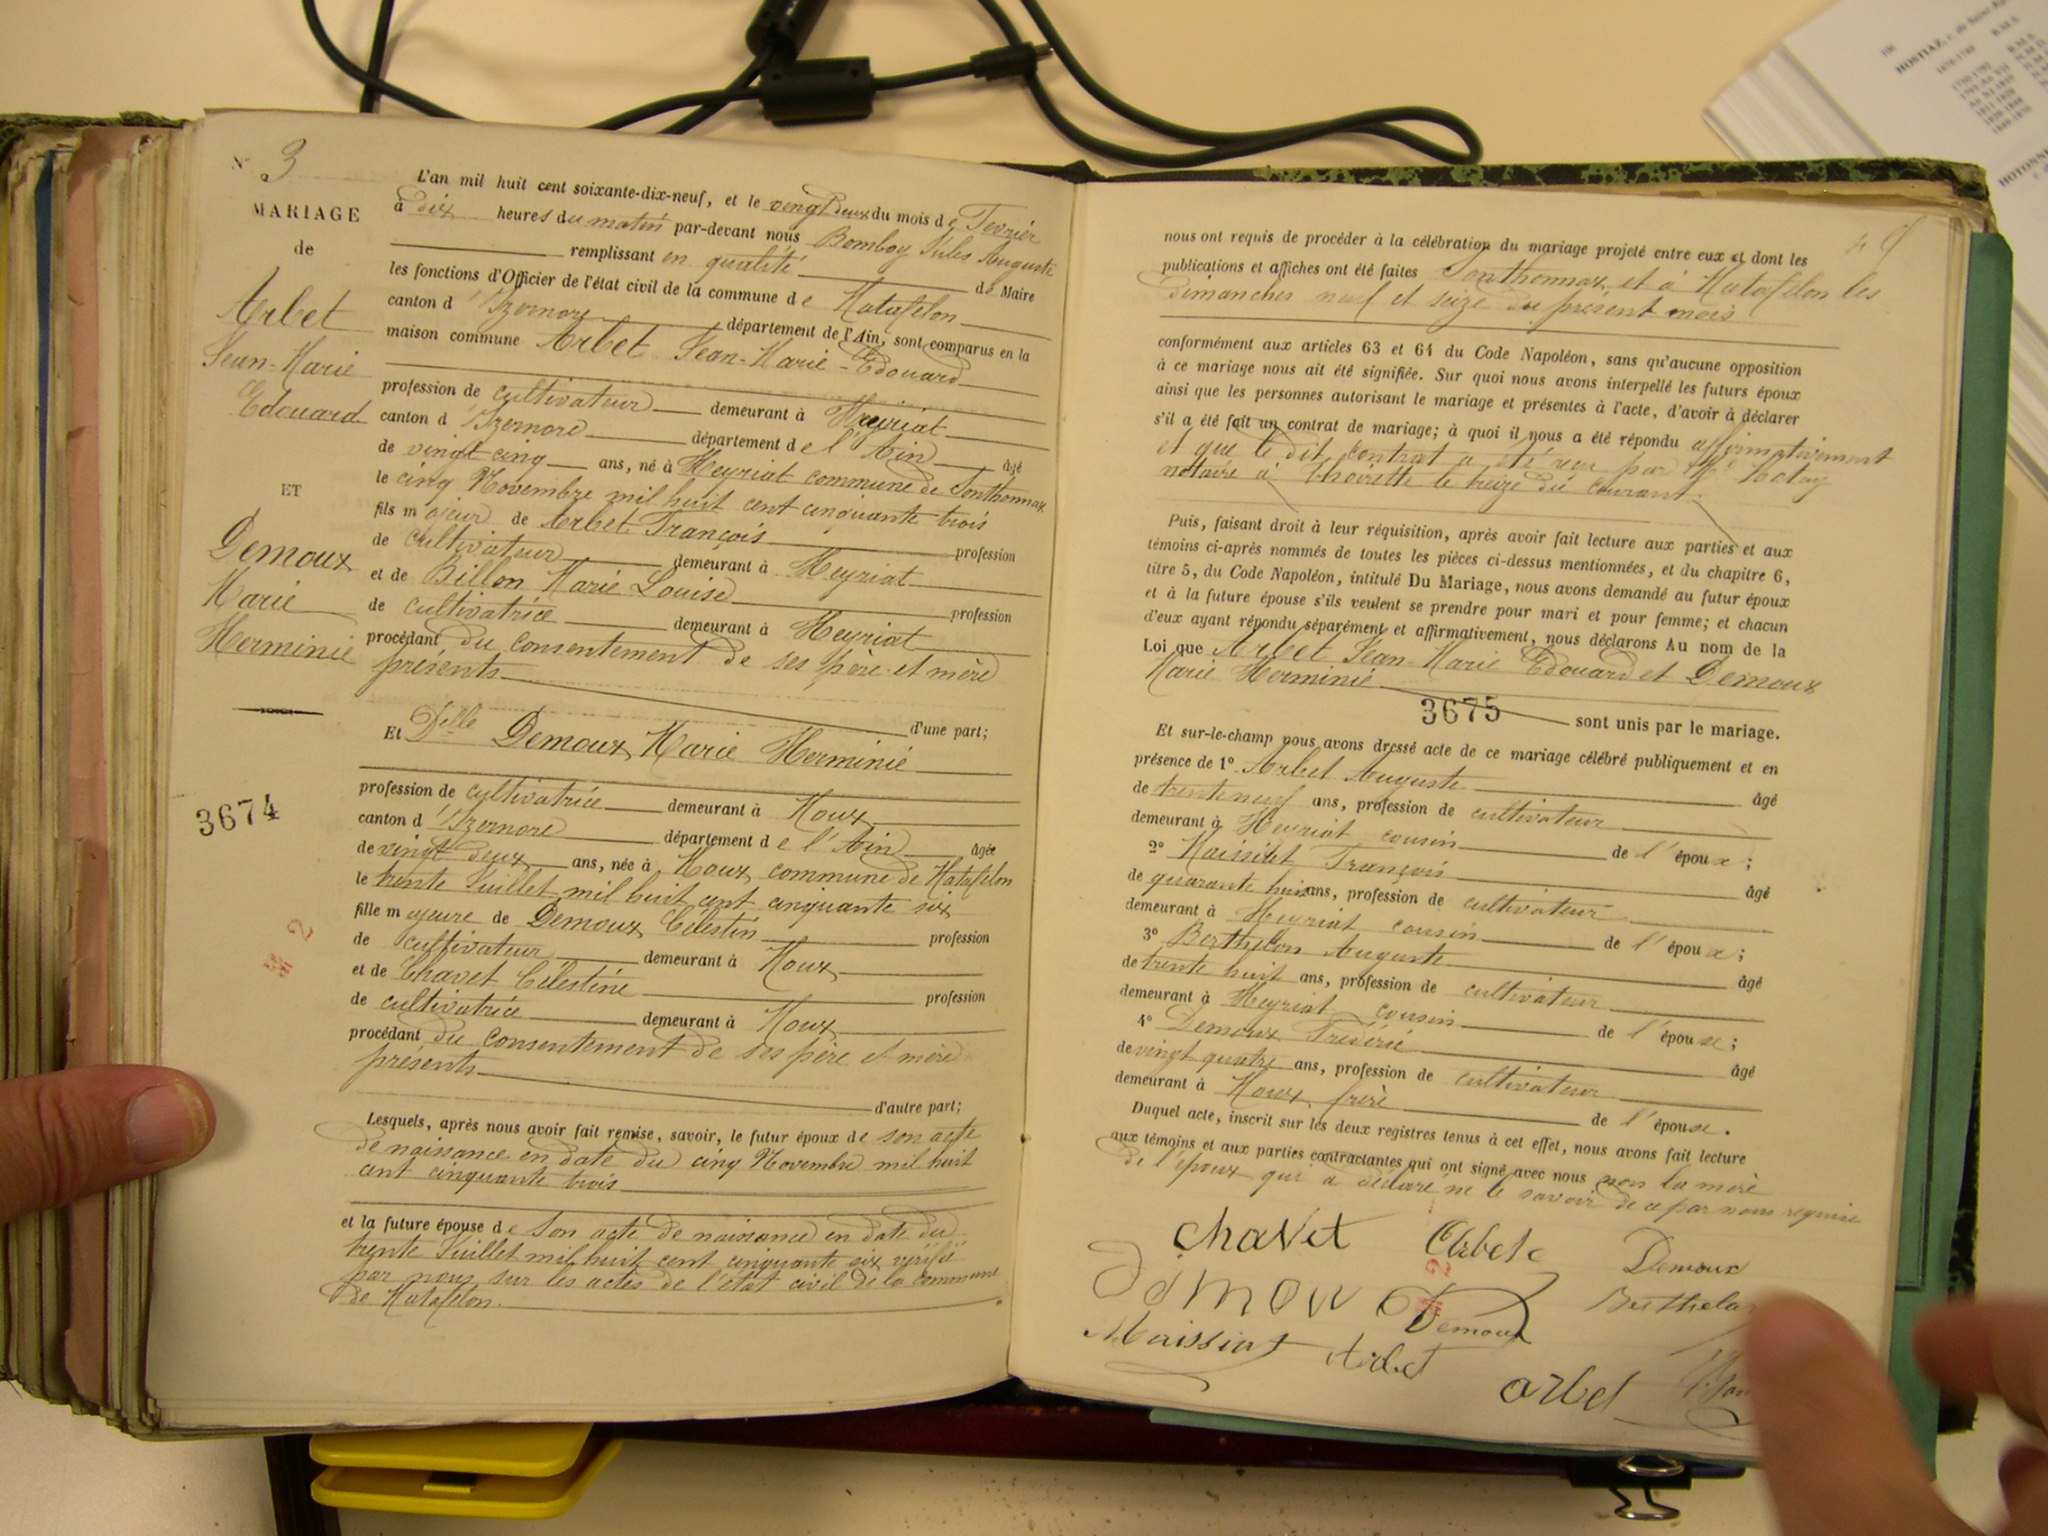 N° 3
MARIAGE
de
Arbet
Jean-Marie
Edouard
ET
Demoux
Marie
Herminie
3674
L'an mil huit cent soixante-dix-neuf, et le vingt deux du mois de Fevrier
à dix heures du matin par-devant nous Bomboy Jules Auguste
remplissant en qualité de Maire
les fonctions d'Officier de l'état civil de la commune de Matafelon
canton d'Izernore département de l'Ain, sont comparus en la
maison commune Arbet Jean-Marie-Edouard
profession de cultivateur demeurant à Heyriat
canton d'Izernore département de l'Ain âgé
de vingt cinq ans, né à Heyriat commune de Sonthonnax
le cinq Novembre mil huit cent cinquante trois
fils majeur de Arbet François profession
de cultivateur demeurant à Heyriat
et de Billon Marie Louise profession
de cultivatrice demeurant à Heyriat
procédant du consentement de ses père et mère
présents d'une part;
Et Delle Demoux Marie Herminie
profession de cultivatrice demeurant à Moux
canton d'Izernore département de l'Ain âgée
de vingt deux ans, née à Moux commune de Matafelon
le trente Juillet mil huit cent cinquante six
fille majeure de Demoux Célestin profession
de cultivateur demeurant à Moux
et de Chavet Célestine profession
de cultivatrice demeurant à Moux
procédant du consentement de ses père et mère
présents d'autre part;
Lesquels, après nous avoir fait remise, savoir, le futur époux de son acte
de naissance en date du cinq Novembre mil huit
cent cinquante trois
et la future épouse de son acte de naissance en date du
trente Juillet mil huit cent cinquante six vérifié
par nous sur les actes de l'état civil de la commune
de Matafelon.
nous ont requis de procéder à la célébration du mariage projeté entre eux et dont les
publications et affiches ont été faites Sonthonnax et à Matafelon les
dimanches neuf et seize du présent mois
conformément aux articles 63 et 64 du Code Napoléon, sans qu'aucune opposition
à ce mariage nous ait été signifiée. Sur quoi nous avons interpellé les futurs époux
ainsi que les personnes autorisant le mariage et présentes à l'acte, d'avoir à déclarer
s'il a été fait un contrat de mariage; à quoi il nous a été répondu affirmativement
et que le dit contrat a été reçu par Me
notaire à Thoirette le treize du courant.
Puis, faisant droit à leur réquisition, après avoir fait lecture aux parties et aux
témoins ci-après nommés de toutes les pièces ci-dessus mentionnées, et du chapitre 6,
titre 5, du Code Napoléon, intitulé Du Mariage, nous avons demandé au futur époux
et à la future épouse s'ils veulent se prendre pour mari et pour femme; et chacun
d'eux ayant répondu séparément et affirmativement, nous déclarons Au nom de la
Loi que Arbet Jean-Marie Edouard et Demoux
Marie Herminie
3675 sont unis par le mariage.
Et sur-le-champ nous avons dressé acte de ce mariage célébré publiquement et en
présence de 1° Arbet Auguste âgé
de trente neuf ans, profession de cultivateur
demeurant à Heyriat cousin de l'époux;
2° Maissiat François âgé
de quarante huit ans, profession de cultivateur
demeurant à Heyriat cousin de l'époux;
3° Berthelon Auguste âgé
de trente huit ans, profession de cultivateur
demeurant à Heyriat cousin de l'épouse;
4° Demoux Fréderic âgé
de vingt quatre ans, profession de cultivateur
demeurant à Moux frère de l'épouse.
Duquel acte, inscrit sur les deux registres tenus à cet effet, nous avons fait lecture
aux témoins et aux parties contractantes qui ont signé avec nous non la mère
de l'époux qui a déclaré ne le savoir de ce par nous requise
chavet Arbet Demoux
Demoux Berthelon
Maissiat Arbet
arbet
HOSTIAZ
HOTONNE